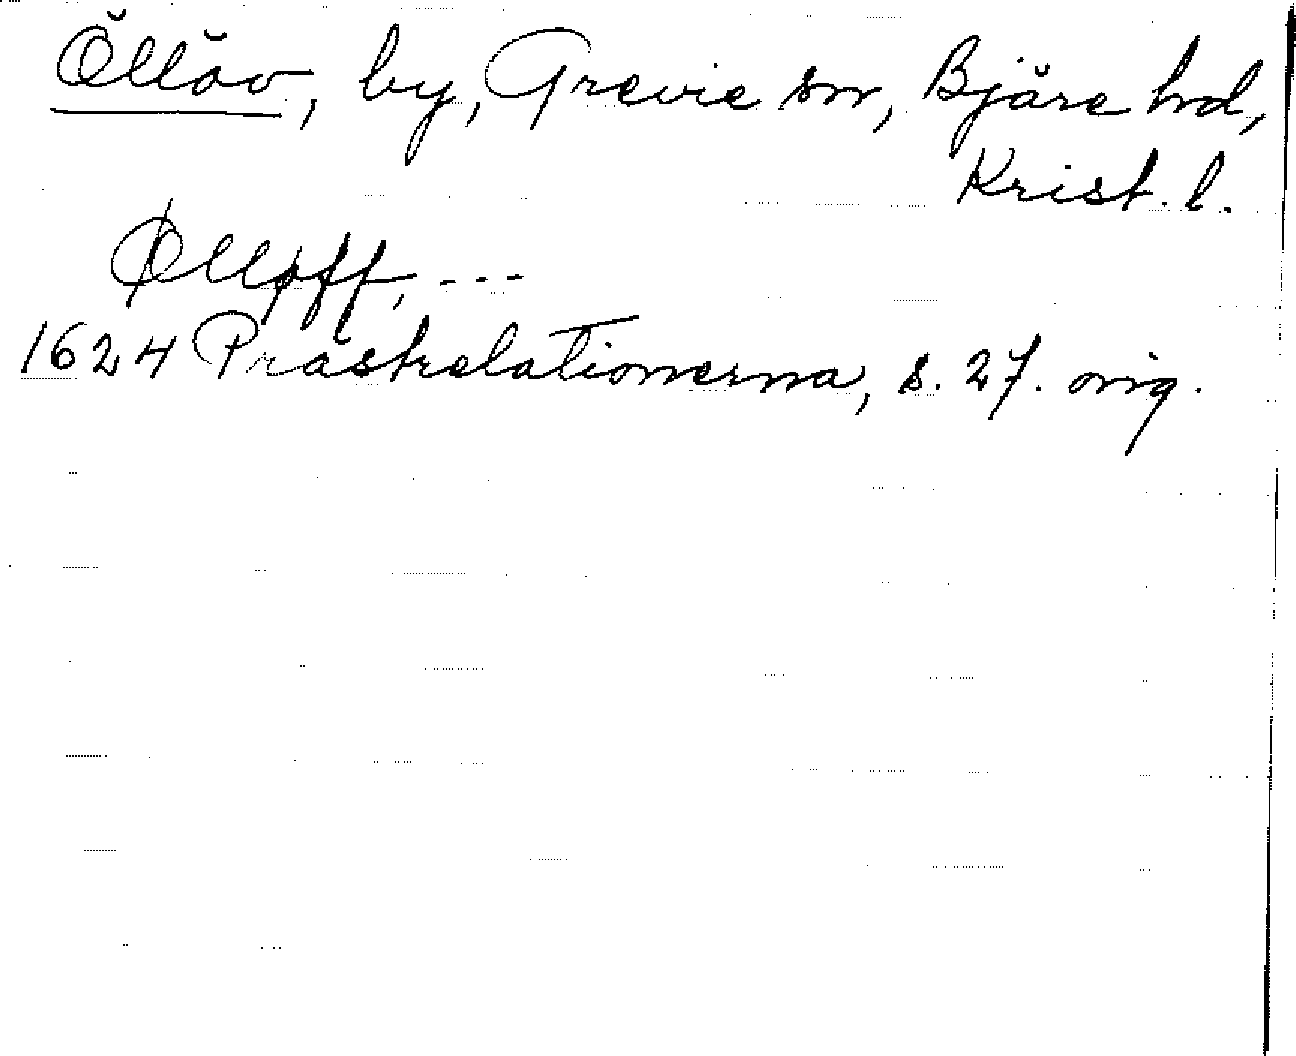 Öllöv, by, Grevie sn, Bjäre hd,
Krist. l.
Ølløff, ---
1624 Prästrelationerna, s. 27. orig.